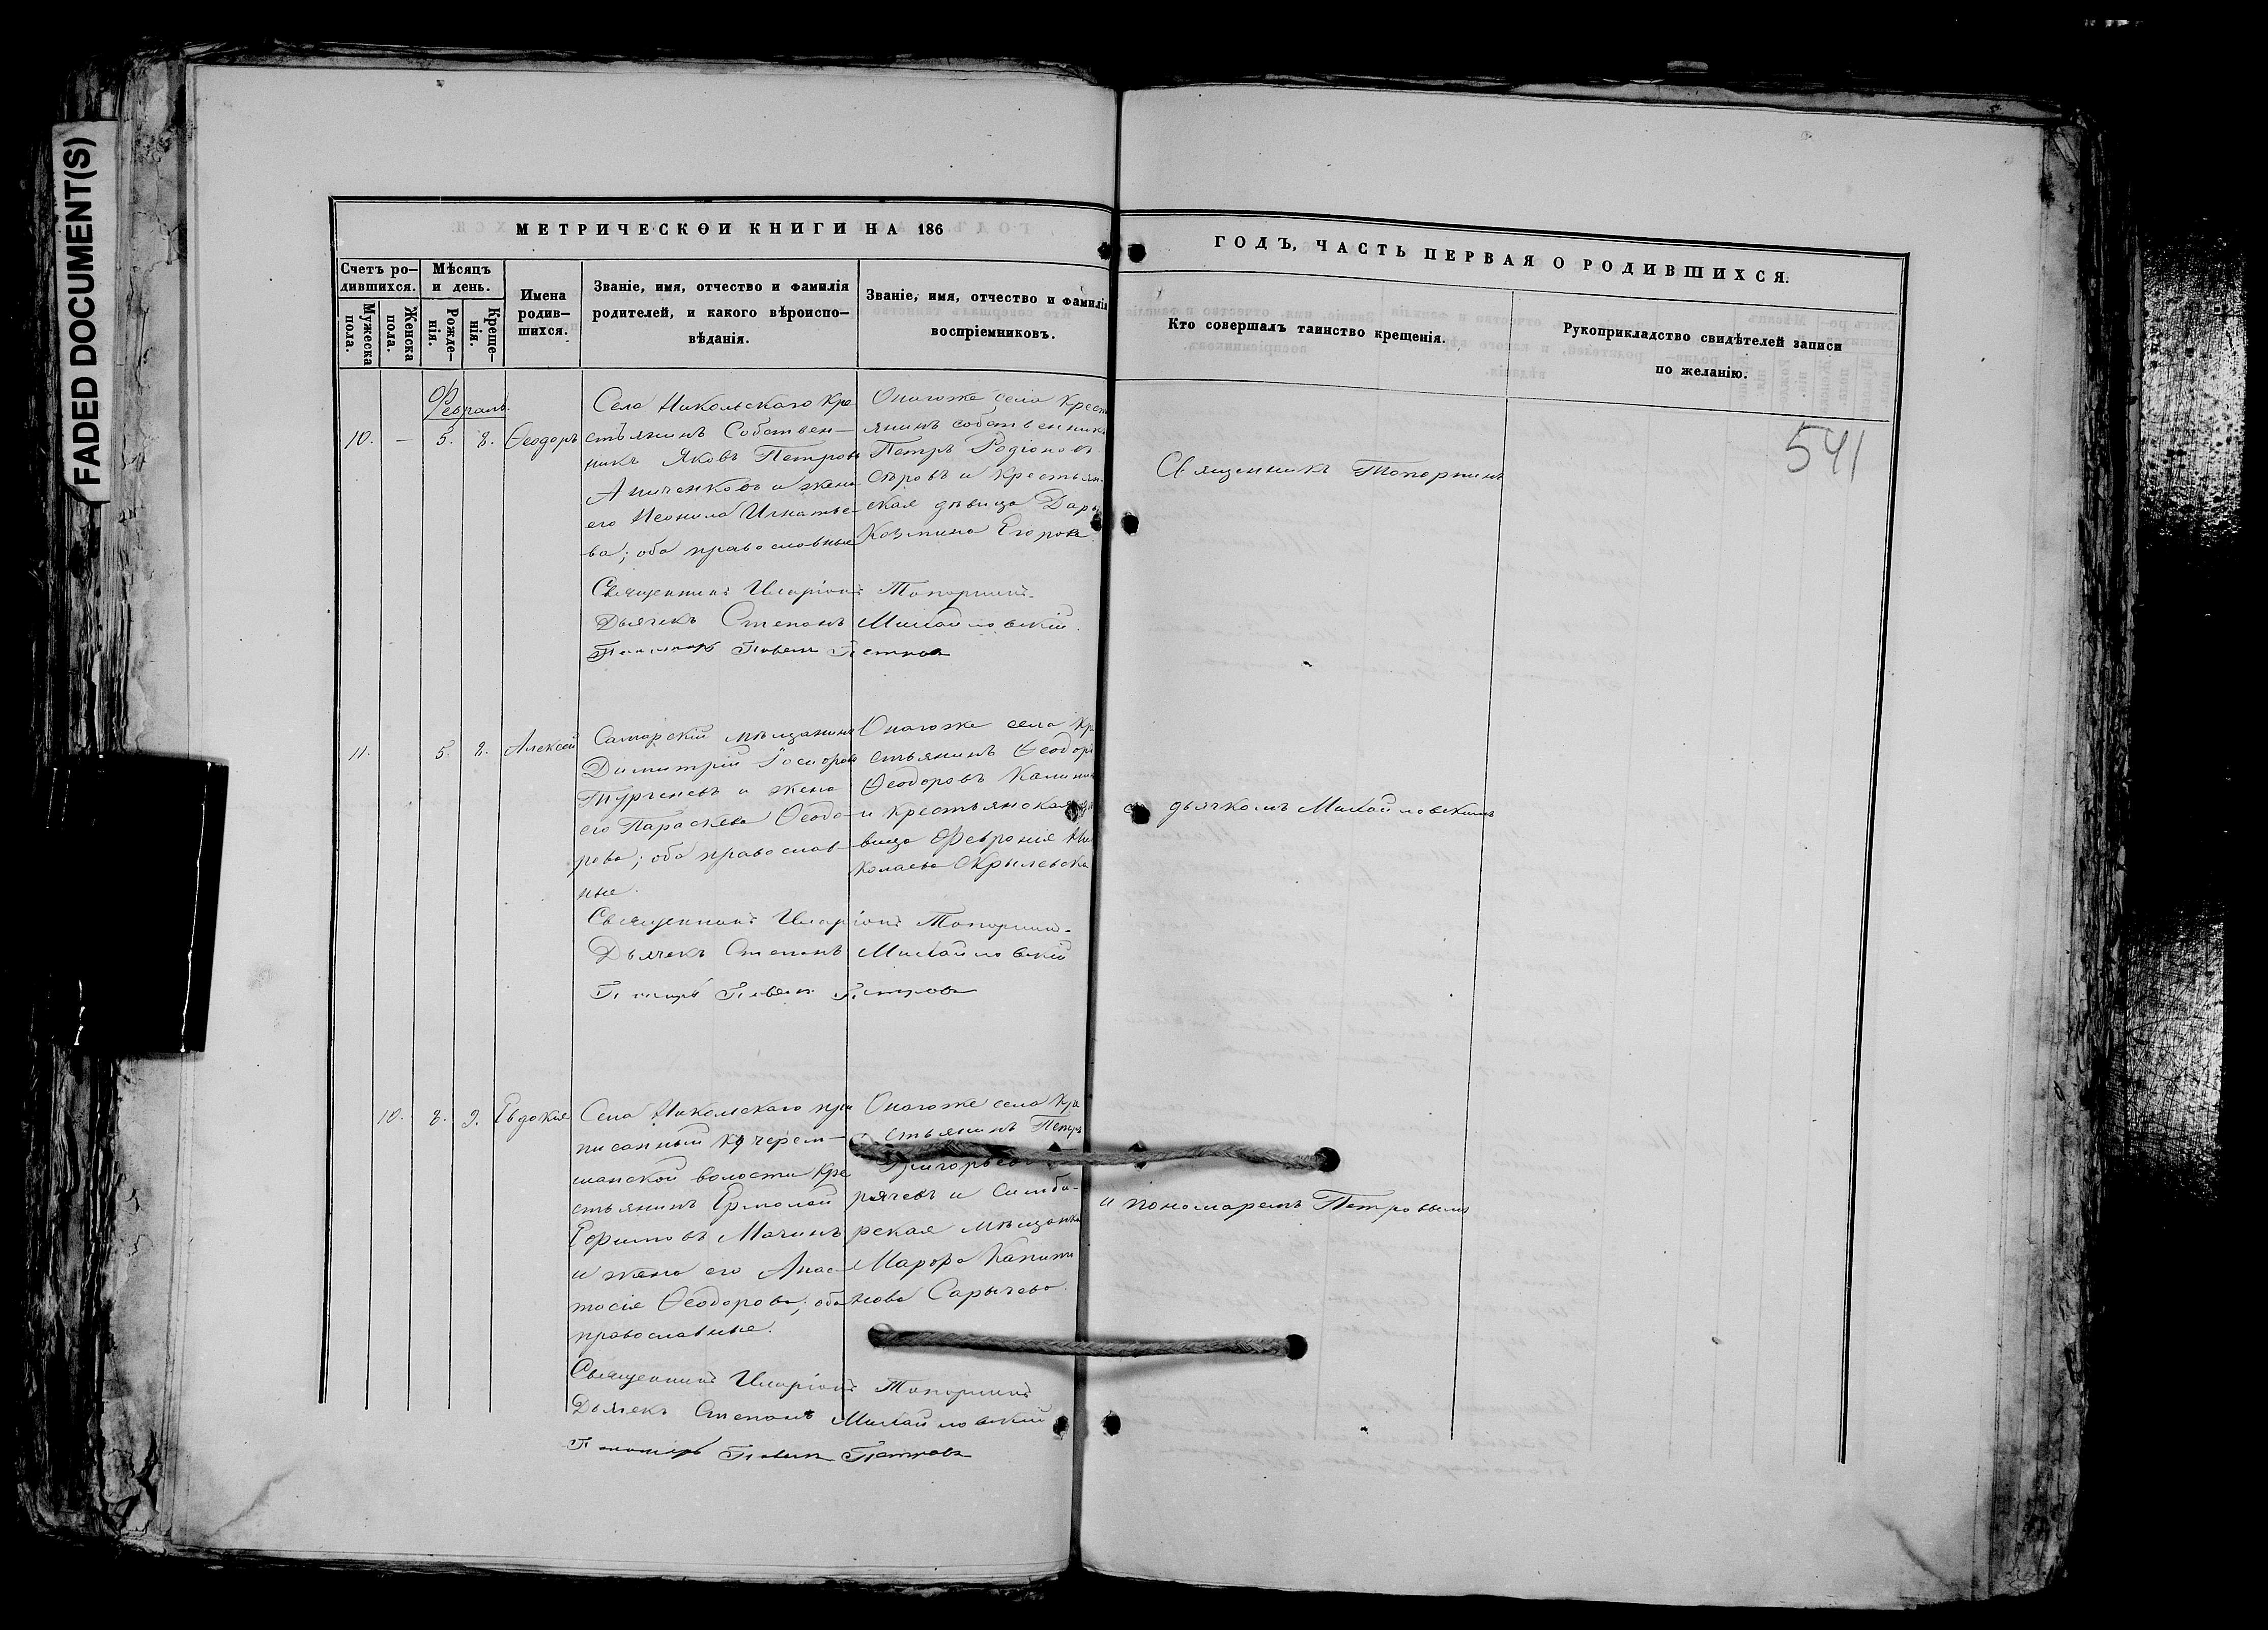 FADED DOCUMENT(S)
МЕТРИЧЕСКОЙ КНИГИ НА 186
ГОДЪ, ЧАСТЬ ПЕРВАЯ О РОДИВШИХСЯ.
Счетъ ро-
дившихся.
Мужеска
пола.
Женска
пола.
Мѣсяцъ
и день.
Рожде-
нія.
Креще-
нія.
Имена
родив-
шихся.
Званіе, имя, отчество и фамилія
родителей, и какого вѣроиспо-
вѣданія.
Званіе, имя, отчество и фамилія
воспріемниковъ.
Кто совершалъ таинство крещенія.
Рукоприкладство свидѣтелей записи
по желанію.
541
Февраль.
10. — 5. 8. Ѳеодоръ
Села Никольскаго Кре
стьянинъ Собствен-
никъ Яковъ Петровъ
и жена
его Неонила Игнатье-
ва; оба православные
Онагоже села Крест
янинъ собственникъ
Петръ Родіоновъ
Сѣровъ и крестьян-
ская дѣвица Дарья
Козмина Егорова.
Священникъ Топорнинъ
Священникъ Иларіонъ Топорнинъ.
Дьячекъ Степанъ Михайловскій.
Пономарь Павелъ Петровъ
11. 5. 8. Алексѣй
Самарскій мѣщанинъ
Димитрій
Тургеневъ и жена
его Параскева Ѳеодо-
рова; оба православ-
ные.
Онагоже села Кре
стьянинъ Ѳеодоръ
Ѳеодоровъ Калинин
и крестьянская дѣ
вица Февронія Ни
колаева
съ дьячкомъ Михайловскимъ
Священникъ Иларіонъ Топорнинъ.
Дьячекъ Степанъ Михайловскій
Пономарь Павелъ Петровъ
10. 8. 9. Евдокія
Села Никольскаго при
писанный к Черем-
шанской волости Кре
стьянинъ Ермолай
Ефимовъ Мачинъ
и жена его Анас-
тасія Ѳеодорова; оба
православные.
Онагоже села Кре
стьянинъ Петръ
Григорьевъ
и Симби-
рская мѣщанка
Марфа Капити
нова Сарычева.
и пономаремъ Петровымъ
Священникъ Иларіонъ Топорнинъ
Дьячекъ Степанъ Михайловскій
Пономарь Павелъ Петровъ